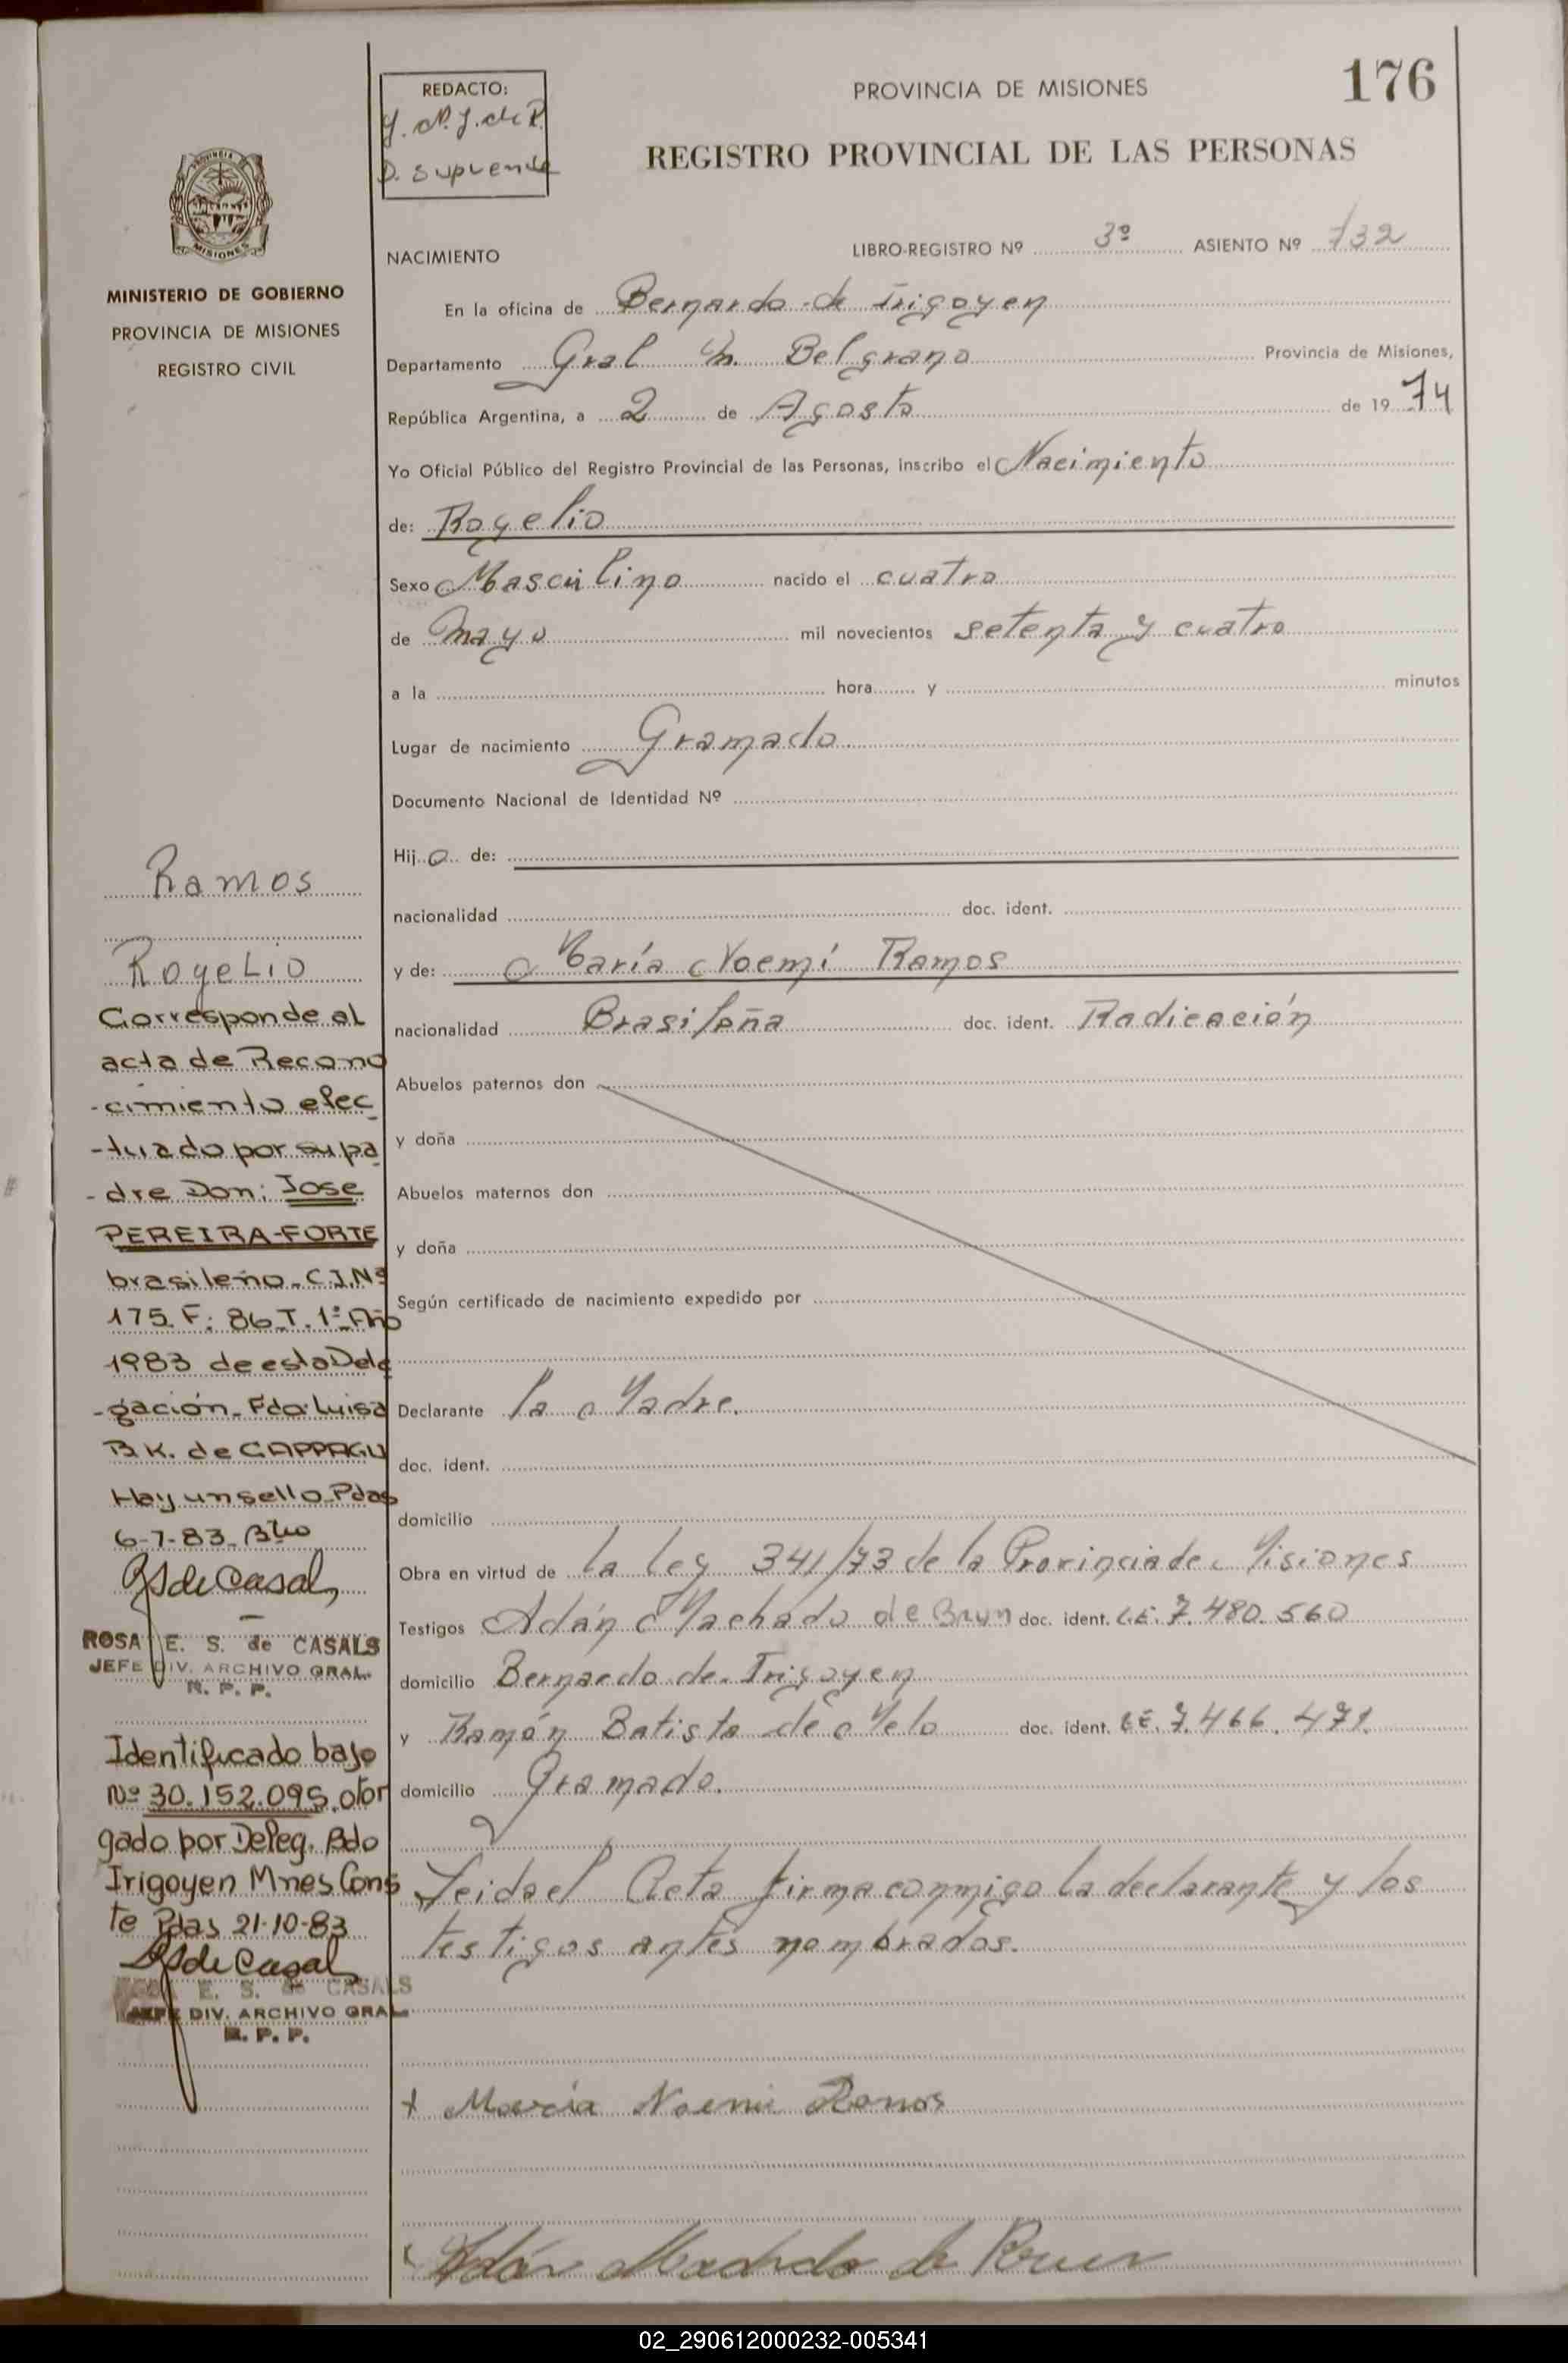 176
REDACTO:
D. Supuende
PROVINCIA DE MISIONES
REGISTRO PROVINCIAL DE LAS PERSONAS
PROVINCIA DE
MISIONES
MINISTERIO DE GOBIERNO
PROVINCIA DE MISIONES
REGISTRO CIVIL
NACIMIENTO LIBRO-REGISTRO Nº 3º ASIENTO Nº 732
En la oficina de Bernardo de Irigoyen
Departamento Gral M. Belgrano Provincia de Misiones,
República Argentina, a 2 de Agosto de 1974
Yo Oficial Público del Registro Provincial de las Personas, inscribo el Nacimiento
de: Rogelio
Sexo Masculino nacido el cuatro
de Mayo mil novecientos setenta y cuatro
a la hora y minutos
Lugar de nacimiento Gramado
Documento Nacional de Identidad Nº
Hijo de:
nacionalidad doc. ident.
y de: María Noemí Ramos
nacionalidad Brasileña doc. ident. Radicación
Abuelos paternos don
y doña
Abuelos maternos don
y doña
Según certificado de nacimiento expedido por
Declarante la Madre.
doc. ident.
domicilio
Obra en virtud de la Ley 341/73 de la Provincia de Misiones
Testigos Adán Machado de Brun doc. ident. L.E. 7.480.560
domicilio Bernardo de Irigoyen
y Ramón Batista de Melo doc. ident. L.E. 7.466.471.
domicilio Gramado.
Leida el Acta firma conmigo la declarante y los
testigos antes nombrados.
+ María Noemi Ramos
Adán Machado de Brun
Ramos
Rogelio
Corresponde al
acta de Recono
-cimiento efec
-tuado por su pa
-dre Don: Jose
PEREIRA-FORTE
brasileño-C.I.Nº
175 F: 86-T. 1º-Año
1983 de esta Dele
-gación-Fdo. Luisa
B.K. de
Hay un sello-Pdas
6-7-83-
RSdeCasals
ROSA E. S. de CASALS
JEFE DIV. ARCHIVO GRAL.
R. P. P.
Identificado bajo
Nº 30.152.095 otor
gado por Deleg. Bdo
Irigoyen Mnes Cons
te Pdas 21-10-83
RSdeCasals
E. S. de CASALS
JEFE DIV. ARCHIVO GRAL
R. P. P.
02_290612000232-005341